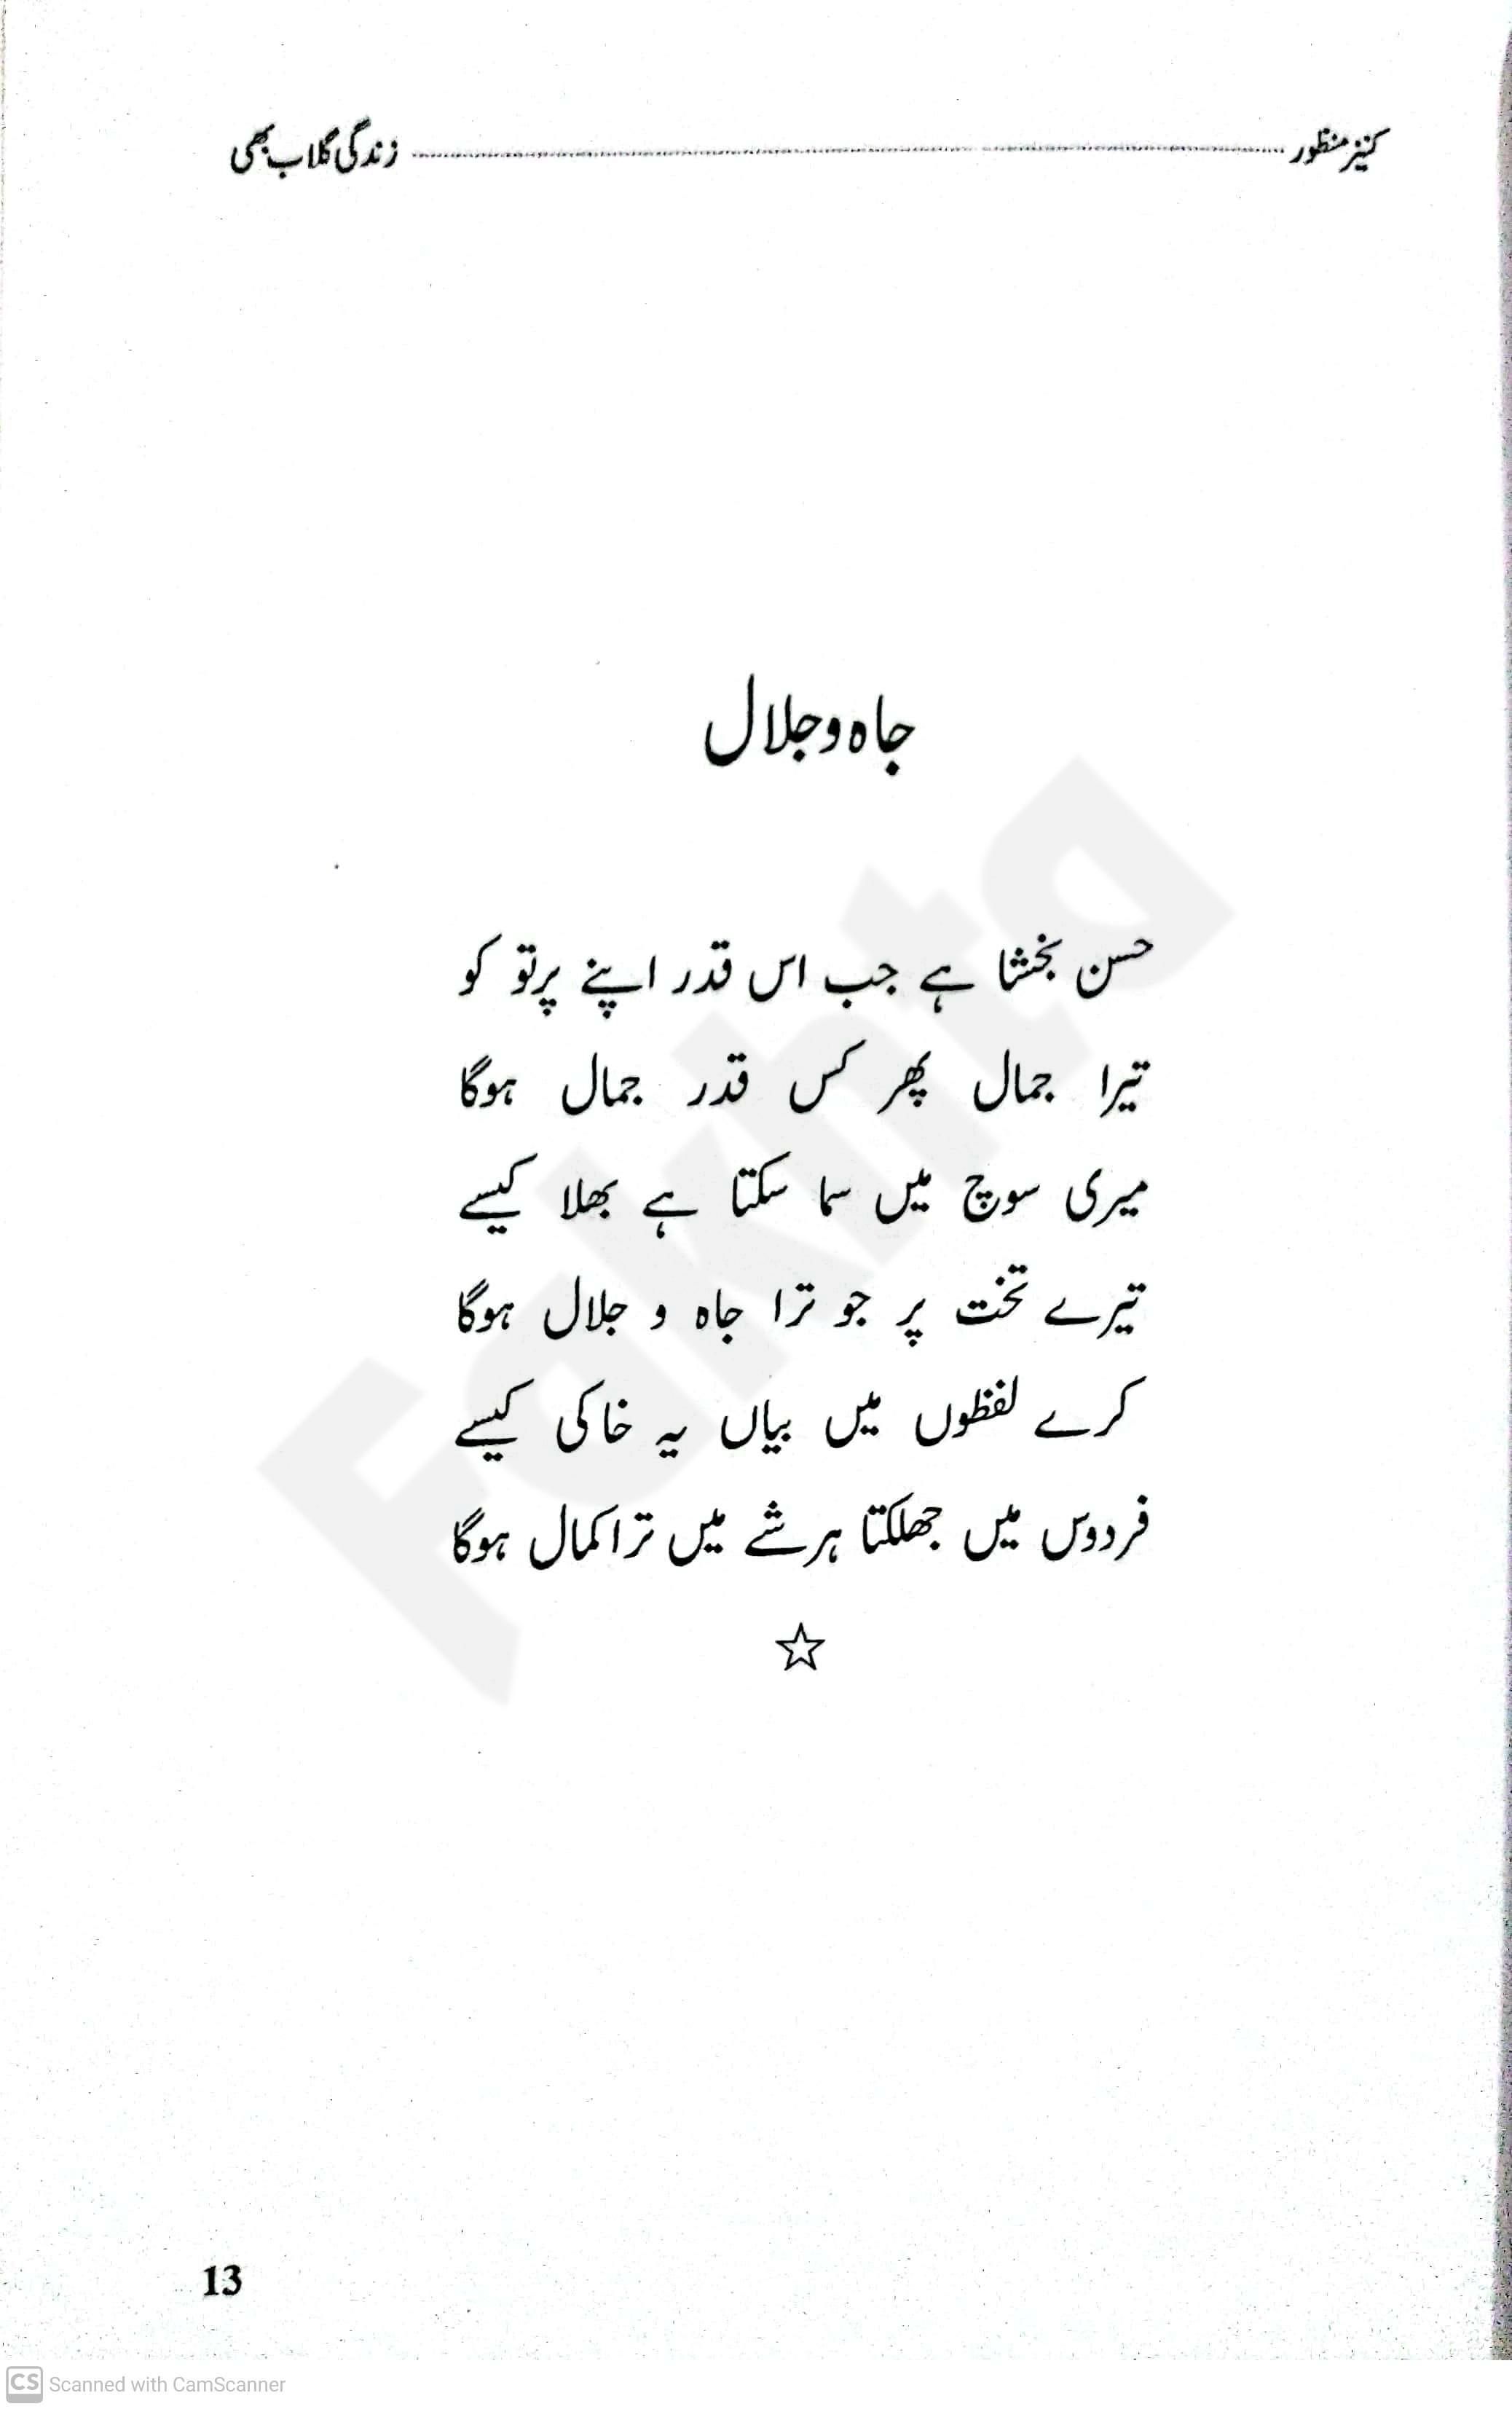 کنیز منظور ........................ زندگی گلاب بھی
جاہ و جلال
حسن بخشا ہے جب اس قدر اپنے پرتو کو
تیرا جمال پھر کس قدر جمال ہوگا
میری سوچ میں سما سکتا ہے بھلا کیسے
تیرے تخت پر جو ترا جاہ و جلال ہوگا
کرے لفظوں میں بیاں یہ خاکی کیسے
فردوس میں جھلکتا ہر شے میں ترا کمال ہوگا
☆
Fakhta
13
CS Scanned with CamScanner